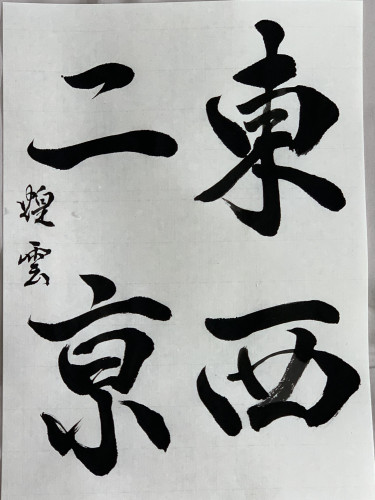 東西
二京
煌雲